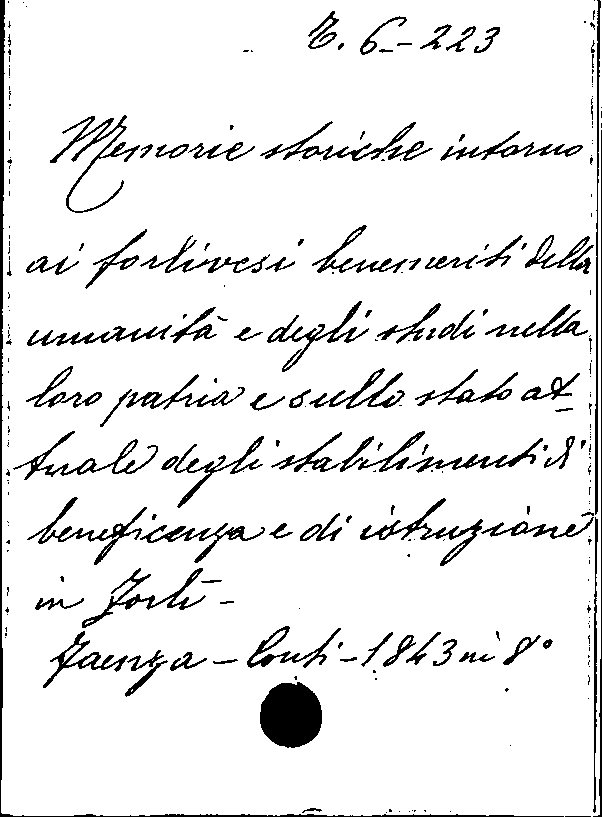 6.-223
Memorie storiche intorno
ai forlivesi benemeriti della
umanità e degli studi nella
loro patria e sullo stato at-
tuale degli stabilimenti di
beneficenza e di istruzione
in Forlì -
Faenza - Conti - 1843 in 8°